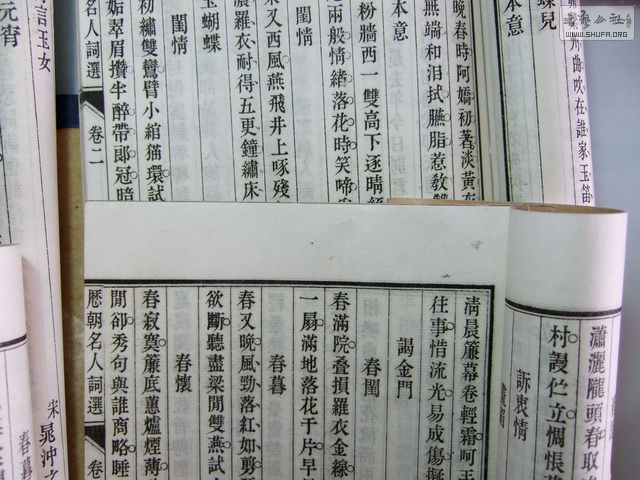 書藝公社
WWW.SHUFA.ORG
蝶兒
州曲吹在誰家玉笛
本意
晚春時阿嬌初著淡黃衣
無端和泪拭臙脂惹教雙
本意
粉牆西一雙高下逐晴絲
兩般情緒落花時笑啼
閨情
來又西風燕飛井上啄殘
濃羅衣耐得五更鐘繡床
玉蝴蝶
閨情
初繡雙鸞臂小綰猫環試
姤翠眉攢半醉帶郎冠暗
名人詞選
卷二
言玉女
元宵
瀟灑隴頭春取
村謾伫立惆悵
訴衷情
清晨簾幕卷輕霜呵
往事惜流光易成傷
謁金門
春閨
春滿院疊損羅衣金線
一扇滿地落花千片早
春暮
春又晚風勁落紅如剪
欲斷聽盡梁間雙燕試
春懷
春寂寞簾底蕙爐煙薄
閒卻秀句與誰商略睡
歷朝名人詞選
卷
宋晁沖
春暮